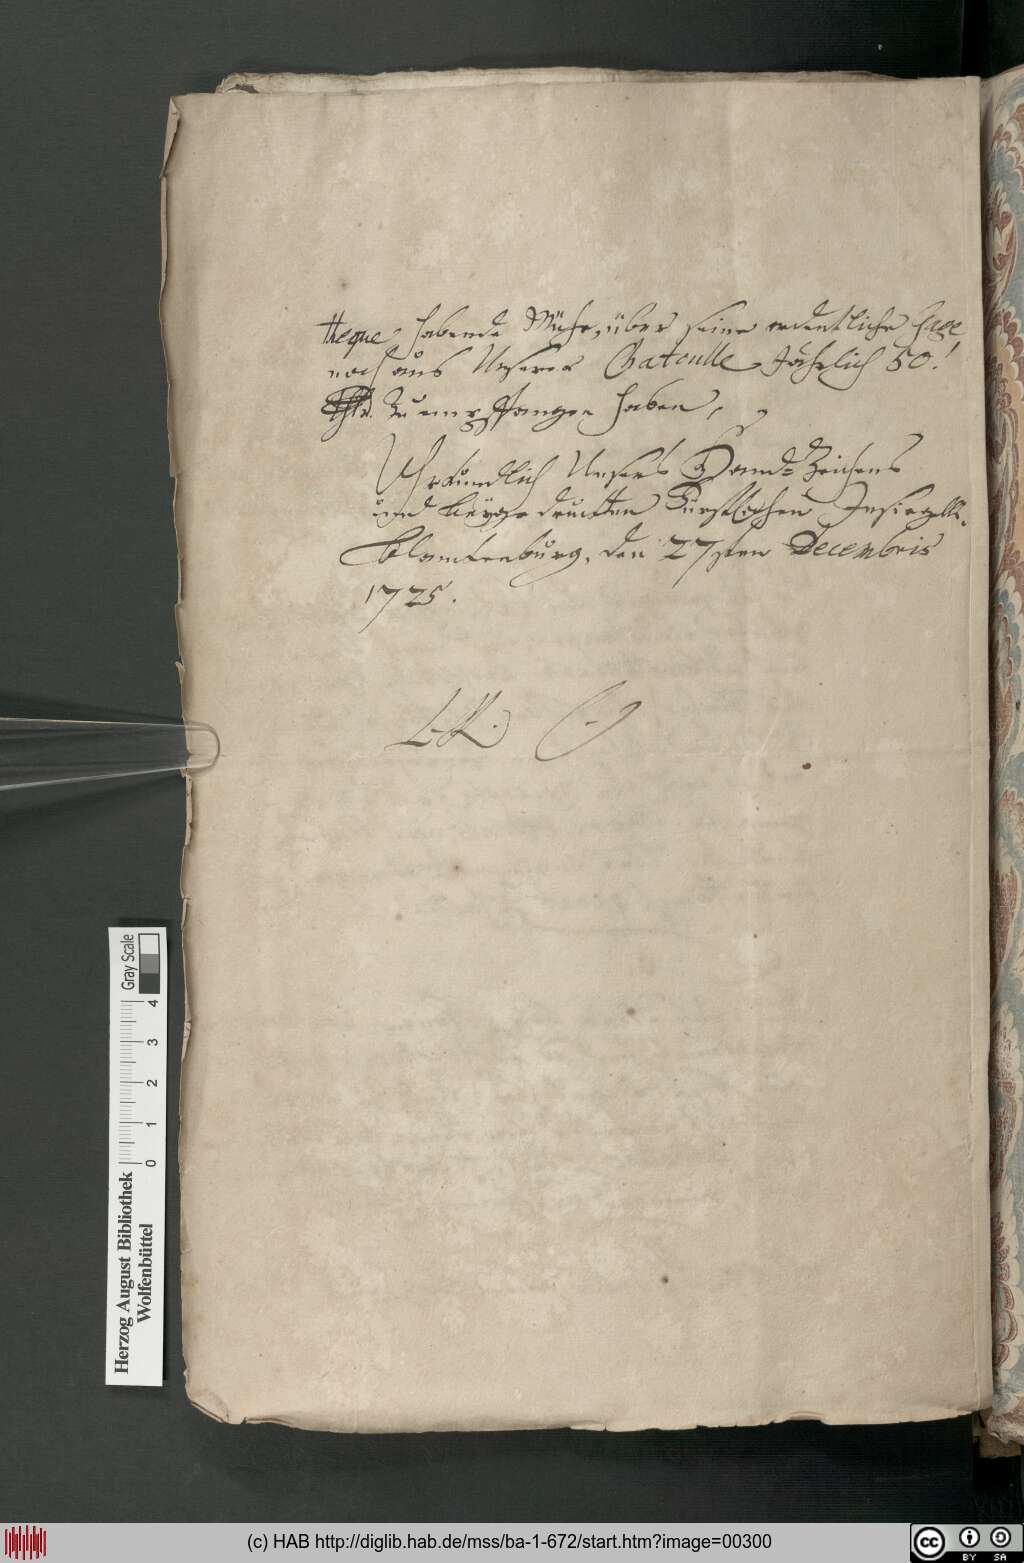 theque habende Mühe, über seine ordentliche gage
noch aus Unserer Chatoulle Jährlich 50.
Thlr. zu empffangen haben,
Uhrkundlich Unsers Hand-Zeichens
und beygedruckten Fürstlichen Insiegells.
Blanckenburg, den 27sten Decembris
1725.
L. R.
Herzog August Bibliothek
Wolfenbüttel
0 1 2 3 4
Gray Scale
(c) HAB http://diglib.hab.de/mss/ba-1-672/start.htm?image=00300
cc BY SA